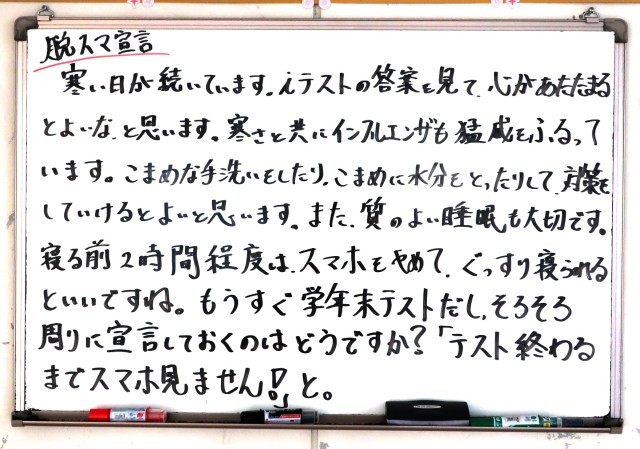 脱スマ宣言
寒い日が続いています。iテストの答案を見て、心があたたまる
とよいな、と思います。寒さと共にインフルエンザも猛威をふるって
います。こまめな手洗いをしたり、こまめに水分をとったりして、対策を
していけるとよいと思います。また、質のよい睡眠も大切です。
寝る前2時間程度は、スマホをやめて、ぐっすり寝られる
といいですね。もうすぐ学年末テストだし、そろそろ
周りに宣言しておくのはどうですか?「テスト終わる
までスマホ見ません!」と。